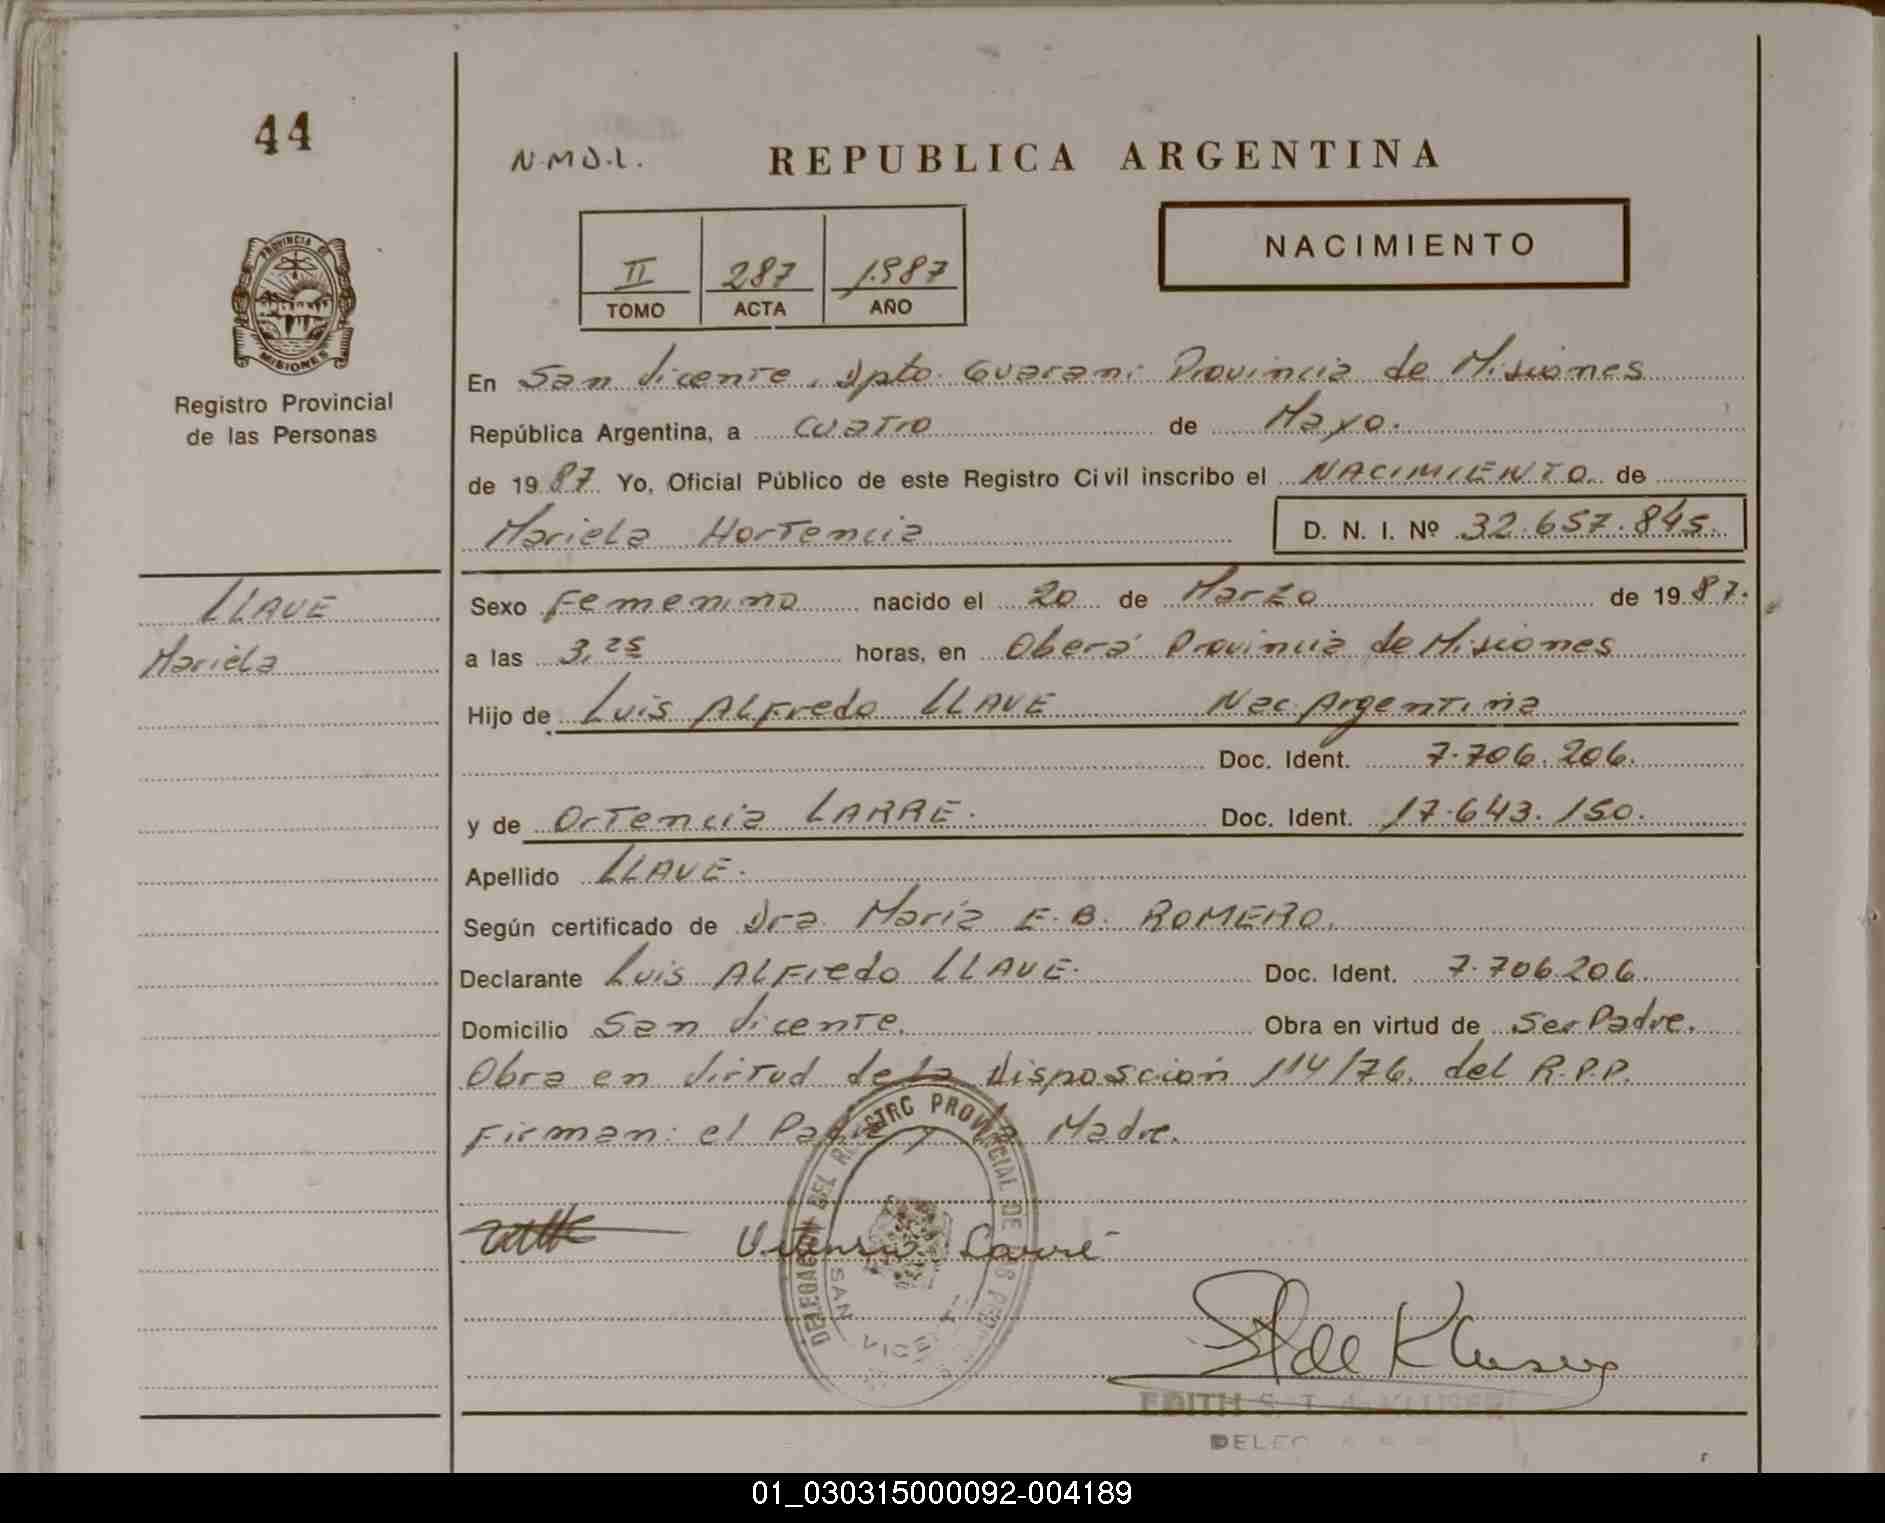 44
N.M.D.L.
REPUBLICA ARGENTINA
NACIMIENTO
II 287 1.987
TOMO ACTA AÑO
PROVINCIA DE
MISIONES
Registro Provincial
de las Personas
En San Vicente, Dpto. Guarani Provincia de Misiones
República Argentina, a cuatro de Mayo.
de 1987. Yo, Oficial Público de este Registro Civil inscribo el NACIMIENTO de
Mariela Hortencia D. N. I. Nº 32.657.845.
LLAVE
Mariela
Sexo Femenino nacido el 20 de Marzo de 1987.
a las 3,25 horas, en Oberá Provincia de Misiones
Hijo de Luis ALFredo LLAVE Nac. Argentina
Doc. Ident. 7.706.206.
y de Ortencia LARRE. Doc. Ident. 17.643.150.
Apellido LLAVE.
Según certificado de Dra. María E.B. ROMERO.
Declarante Luis ALFredo LLAVE. Doc. Ident. 7.706.206.
Domicilio San Vicente. Obra en virtud de Ser Padre.
Obra en virtud de la Disposcion 114/76. del R.P.P.
Firman: el Padre y la Madre.
DELEGACION DEL REGISTRO PROVINCIAL DE LAS
SAN VICENTE
Larré
de Kluser
EDITH S. T. de KLUSER
01_030315000092-004189